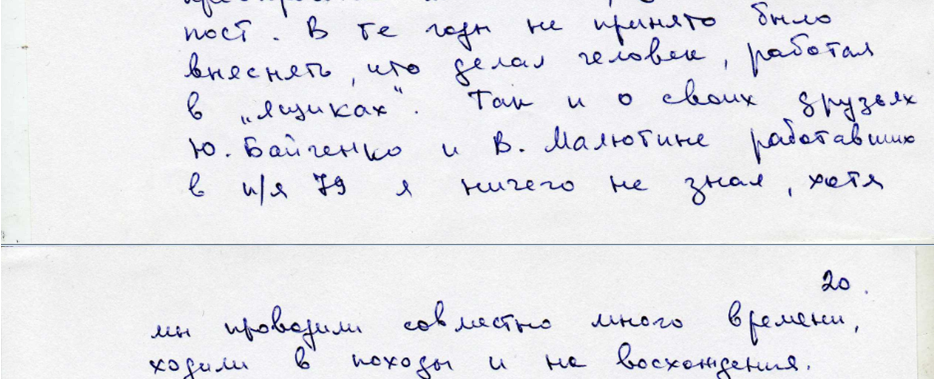 пост. В те годы не принято было
выяснять, что делал человек, работая
в „ящиках“. Так и о своих друзьях
Ю. Байченко и В. Малютине работавших
в п/я 79 я ничего не знал, хотя
20.
мы проводили совместно много времени,
ходили в походы и на восхождения.